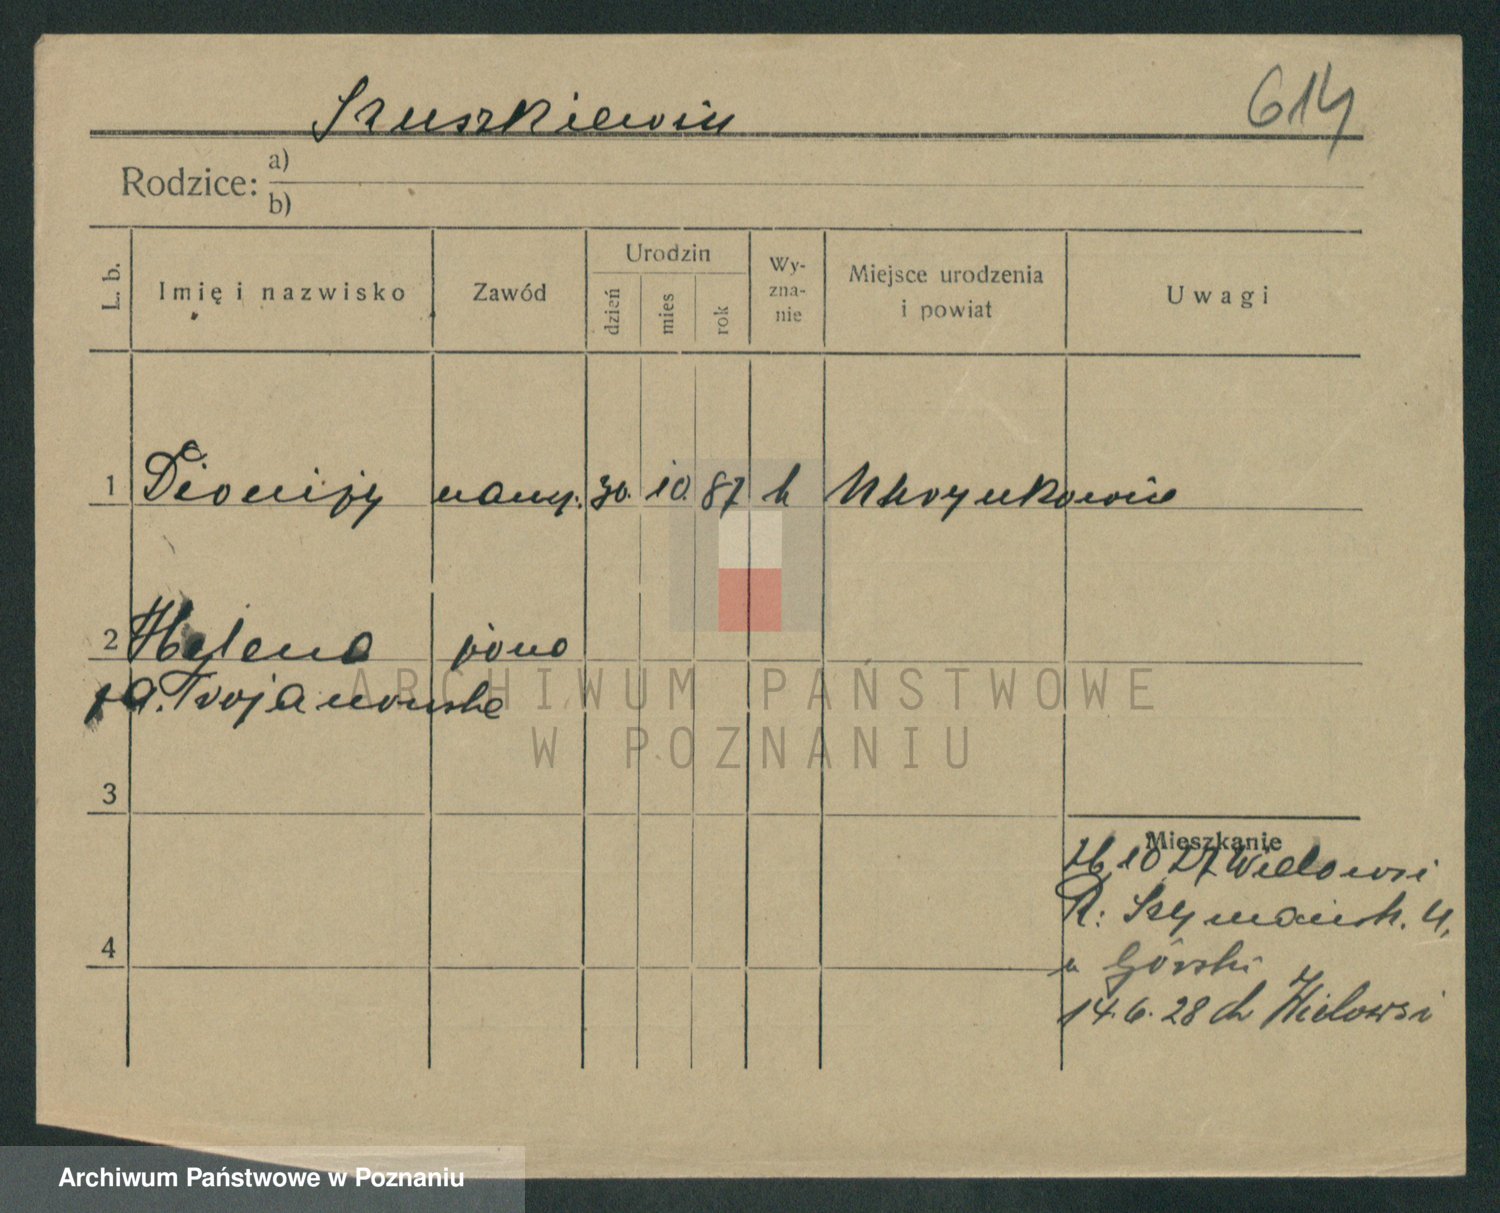 Szuszkiewicz 614
Rodzice: a)
b)
L. b. Imię i nazwisko Zawód Urodzin dzień mies rok Wyznanie Miejsce urodzenia i powiat Uwagi
1 Dionizy naucz. 30. 10. 87 k
2 Helena żona
Trojanowska
3
Mieszkanie
26 10 27 Wielowsi
R: Szymańsk. 4,
Górski
4
14. 6. 28 do Wielowsi
ARCHIWUM PAŃSTWOWE
W POZNANIU
Archiwum Państwowe w Poznaniu